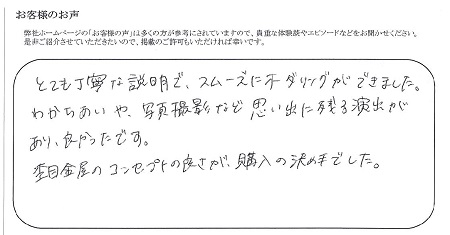 お客様のお声
弊社ホームページの「お客様の声」は多くの方が参考にされていますので、貴重な体験談やエピソードなどをお聞かせください。
是非ご紹介させていただきたいので、掲載のご許可もいただければ幸いです。
とても丁寧な説明で、スムーズにオーダリングができました。
わかちあいや、写真撮影など思い出に残る演出が
あり、良かったです。
杢目金屋のコンセプトの良さが、購入の決め手でした。